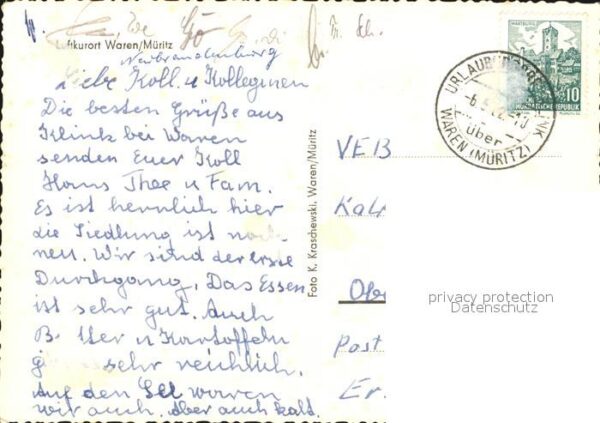 Luftkurort Waren/Müritz
Neubrandenburg
Liebe Koll. u Kolleginnen
Die besten Grüße aus
Klink bei Waren
senden Euer Koll
Hans Thee u Fam.
Es ist herrlich hier
die Siedlung ist noch
neu. Wir sind der erste
Durchgang. Das Essen
ist sehr gut. Auch
B. Uer u Kartoffeln
sehr reichlich.
Auf den See waren
wir auch. Aber auch kalt.
Foto K. Kraschewski, Waren/Müritz
VEB
Kal
Obe
Post
Er.
WARTBURG
10
DEUTSCHE DEMOKRATISCHE REPUBLIK
über
WAREN (MÜRITZ)
privacy protection
Datenschutz